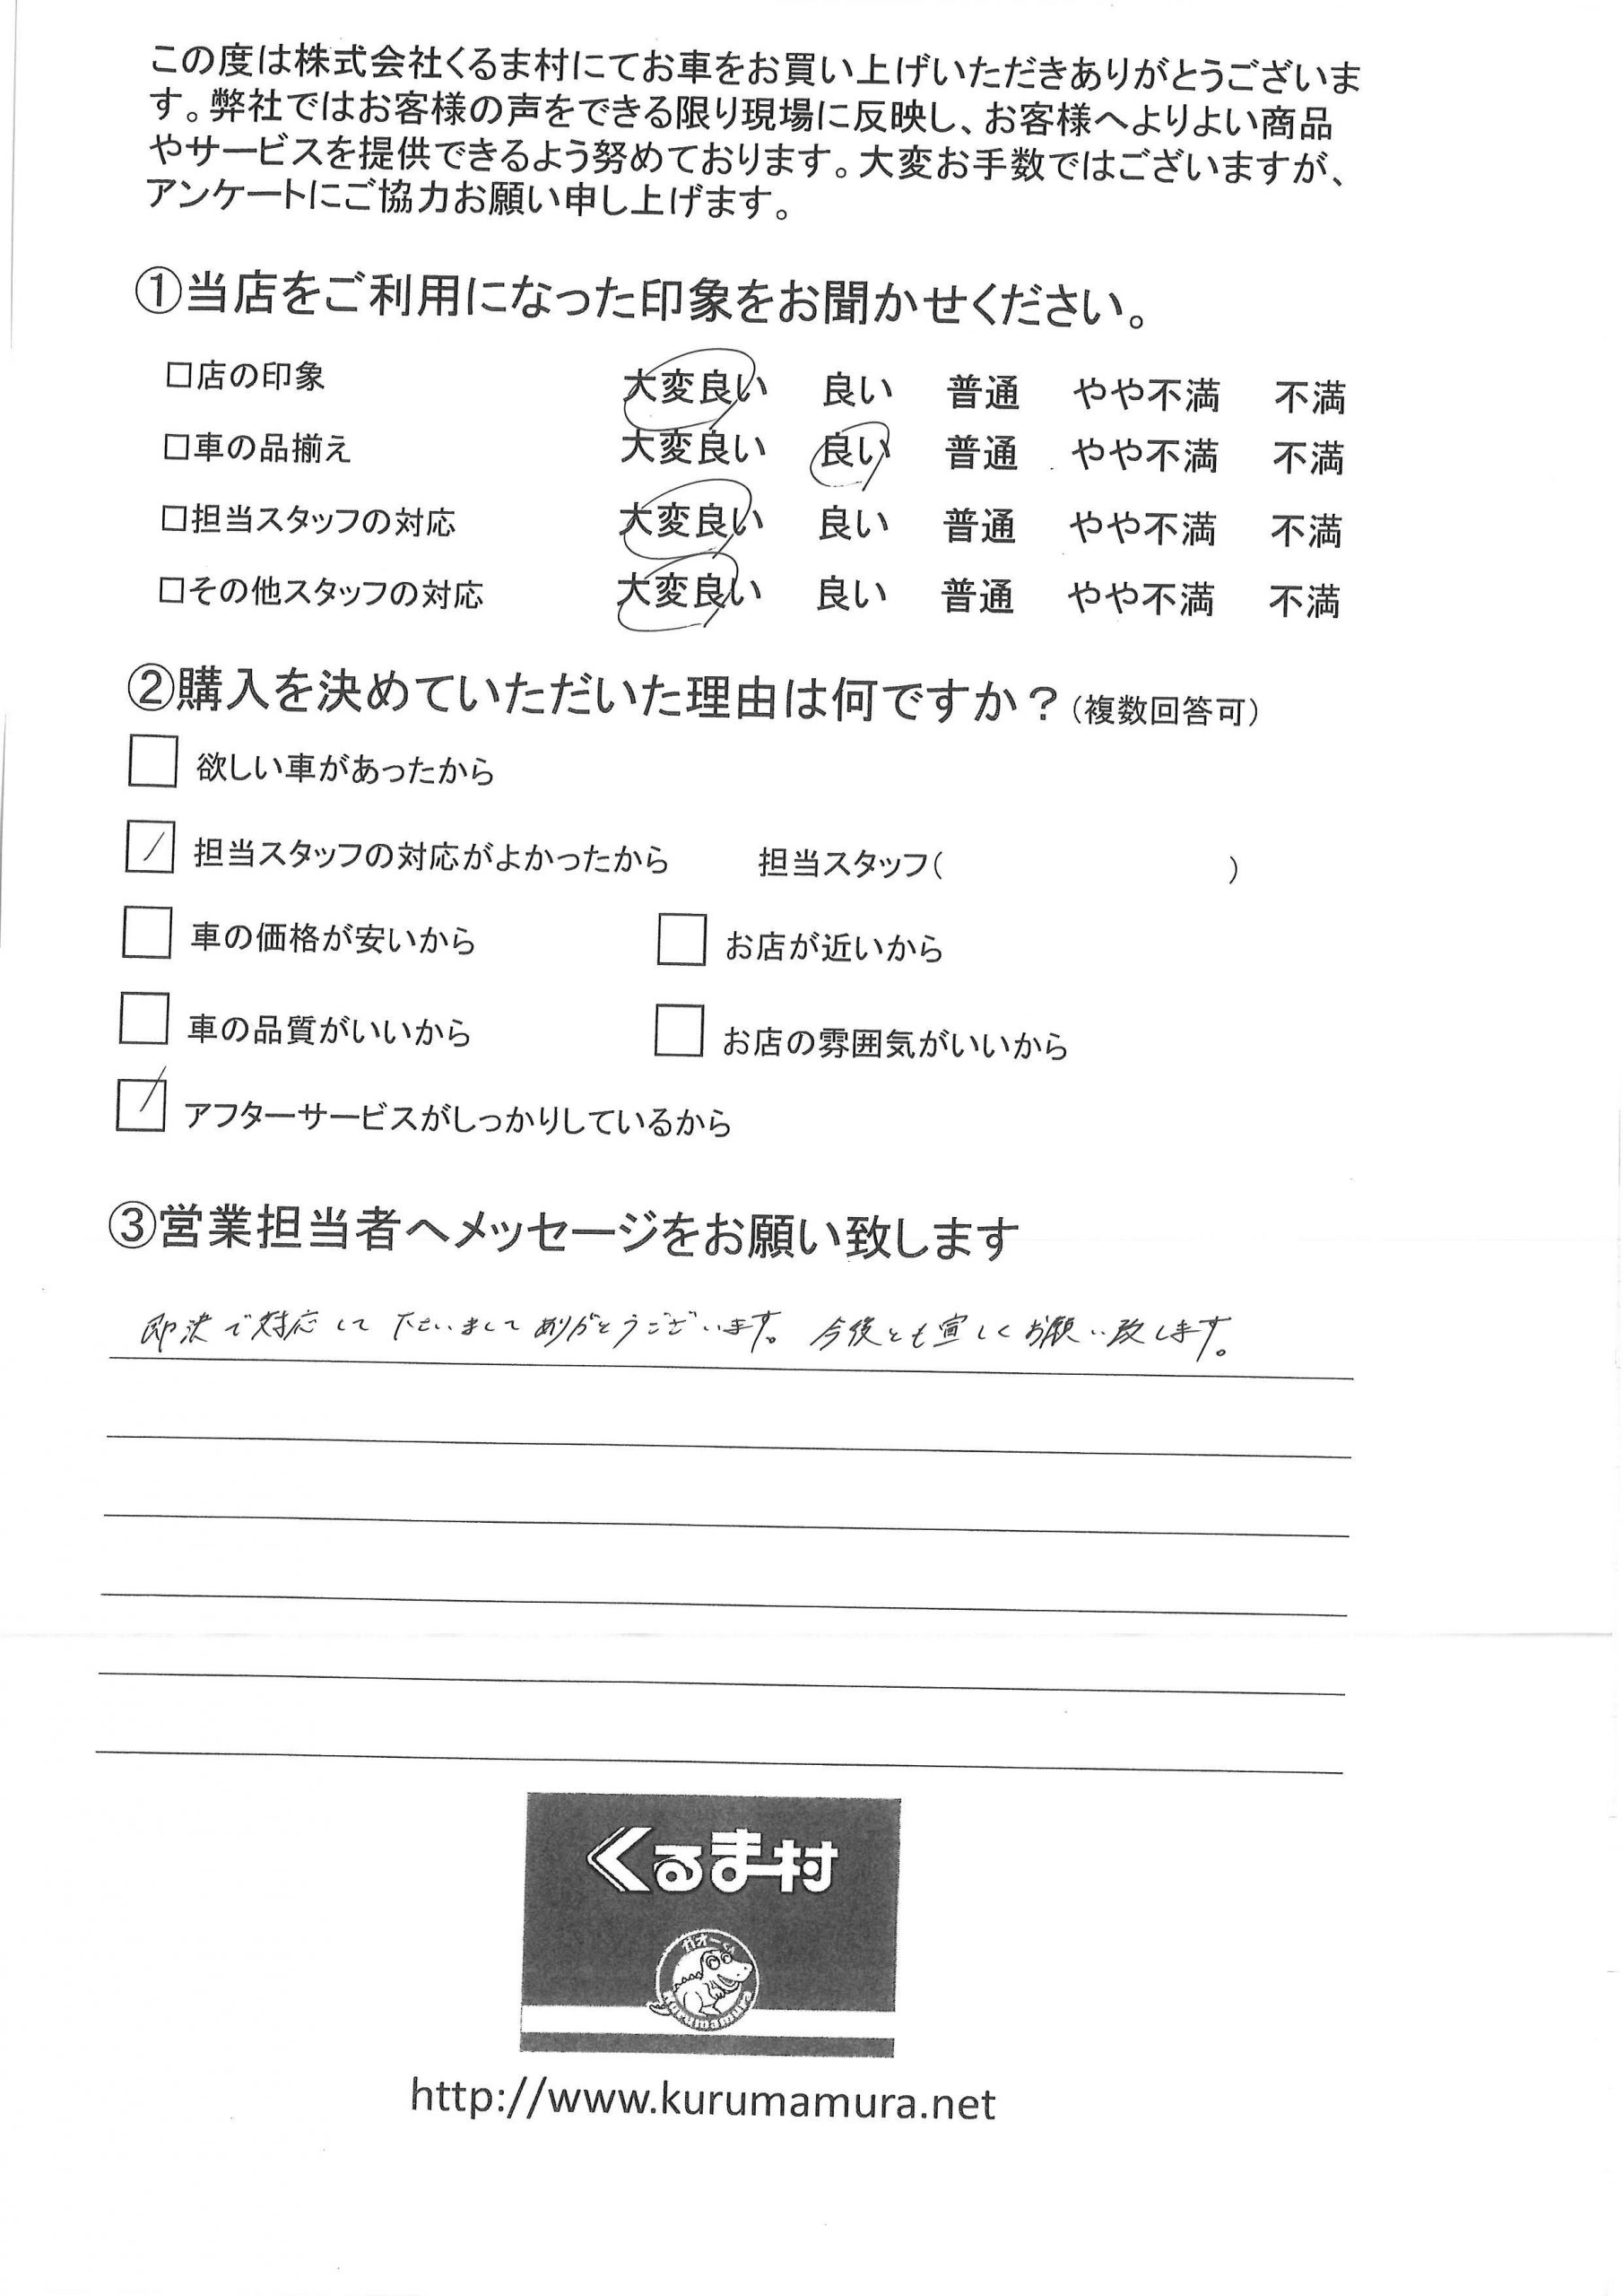 この度は株式会社くるま村にてお車をお買い上げいただきありがとうございま
す。弊社ではお客様の声をできる限り現場に反映し、お客様へよりよい商品
やサービスを提供できるよう努めております。大変お手数ではございますが、
アンケートにご協力お願い申し上げます。
①当店をご利用になった印象をお聞かせください。
□店の印象 大変良い 良い 普通 やや不満 不満
□車の品揃え 大変良い 良い 普通 やや不満 不満
□担当スタッフの対応 大変良い 良い 普通 やや不満 不満
□その他スタッフの対応 大変良い 良い 普通 やや不満 不満
②購入を決めていただいた理由は何ですか？(複数回答可)
欲しい車があったから
担当スタッフの対応がよかったから 担当スタッフ( )
車の価格が安いから お店が近いから
車の品質がいいから お店の雰囲気がいいから
アフターサービスがしっかりしているから
③営業担当者へメッセージをお願い致します
即決で対応して下さいましてありがとうございます。今後とも宜しくお願い致します。
くるま村
ガオーくん
kurumamura
http://www.kurumamura.net